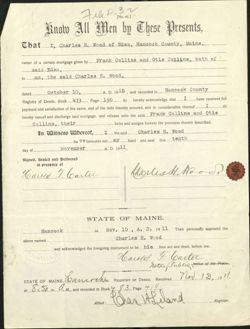 Know All Men by These Presents,
That I, Charles H. Wood of Eden, Hancock County, Maine,
owner of a certain mortgage given by Frank Collins and Otis Collins, both of
said Eden,
to me, the said Charles H. Wood,
dated October 10, A. D. and recorded in Hancock County
Registry of Deeds, Book page 190 do hereby acknowledge that I have received full
payment and satisfaction of the same, and of the debt thereby secured, and in consideration thereof I do
hereby cancel and discharge said mortgage, and release unto the said Frank Collins and Otis
Collins, their heirs and assigns forever the premises therein described.
In Witness Whereof, I the said Charles H. Wood
have hereunto set my hand and seal this tenth
day of November A. D. 1911
Signed, Sealed and Delivered
in presence of
Harold F. Carter Charles H. Wood
STATE OF MAINE.
Hancock ss. Nov. 10, A. D. 1911 Then personally appeared
the above named Charles H. Wood
and acknowledged the foregoing instrument to be his free act and deed, before me.
Harold F. Carter
STATE OF MAINE. Hancock Registry of Deeds. Received Nov 13, 1911
and recorded in Book 483
Attest: Register.